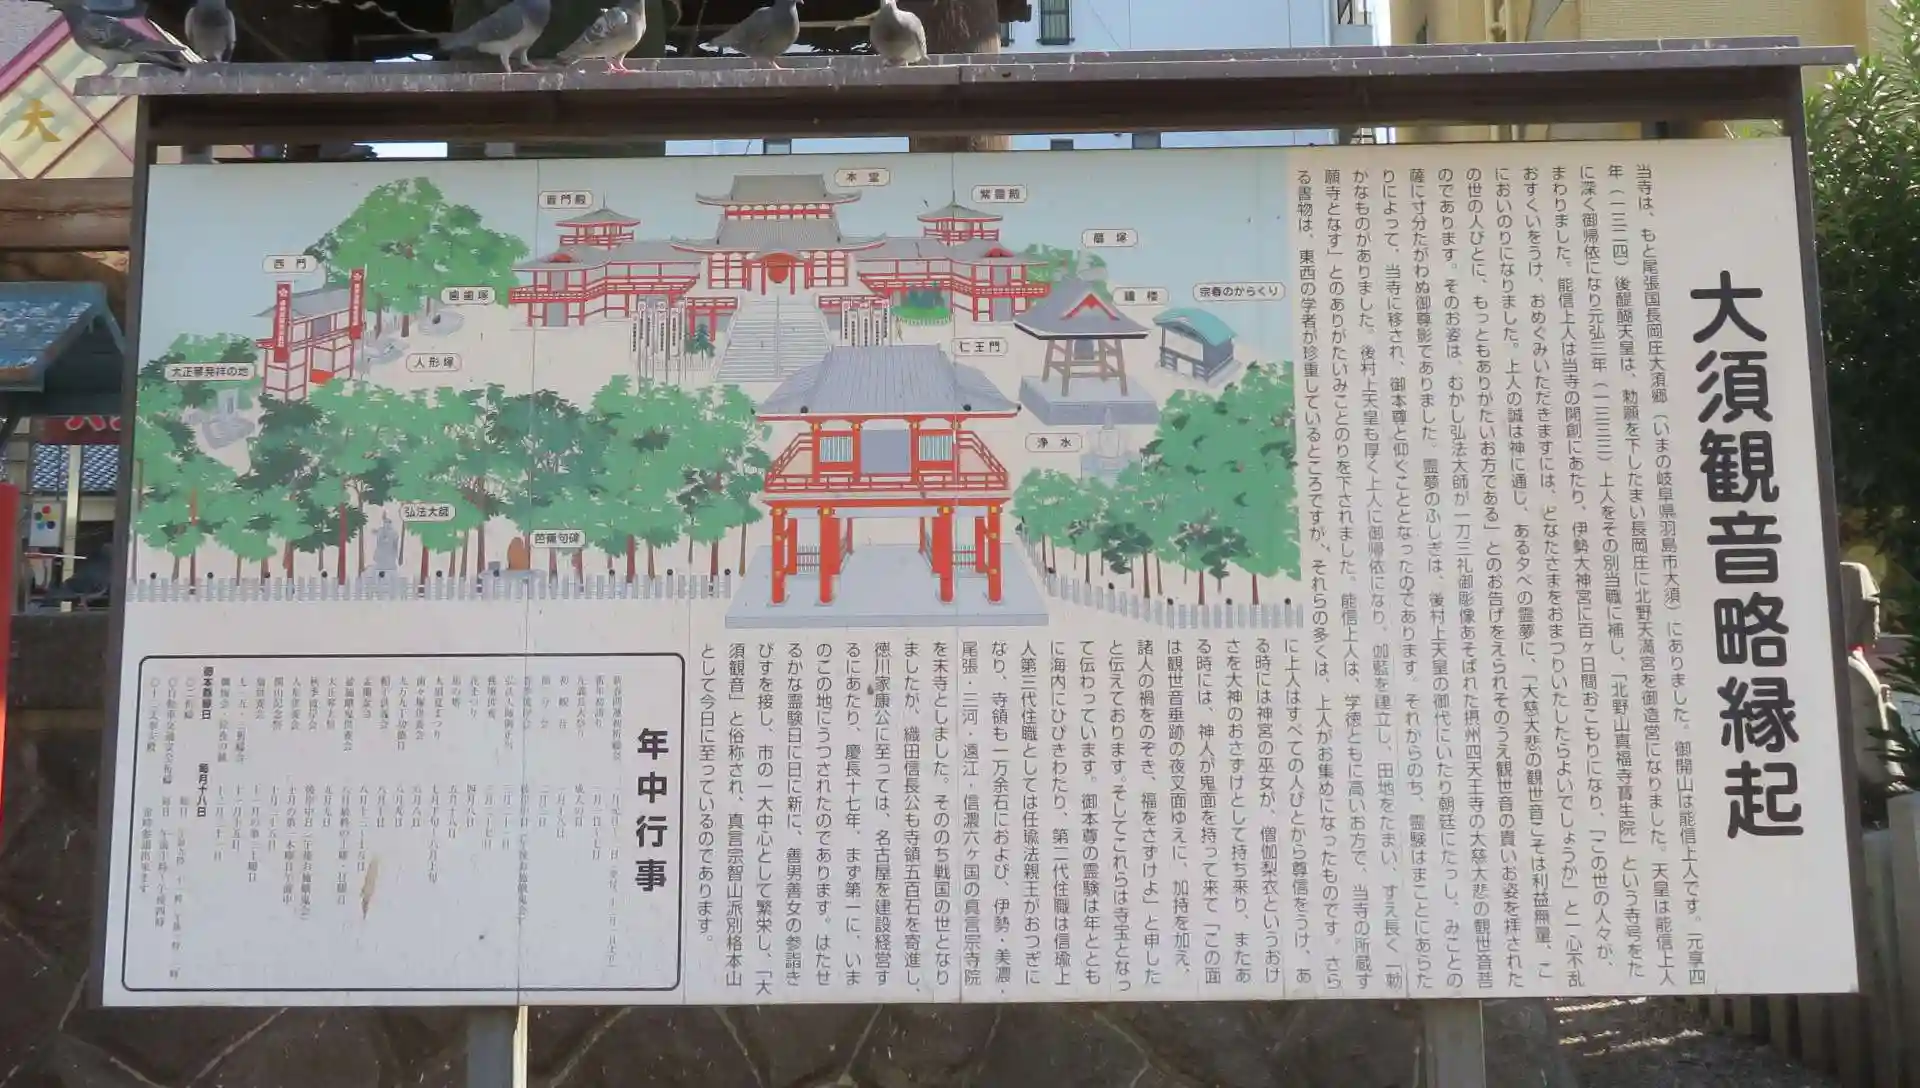 大須観音略縁起
当寺は、もと尾張国長岡庄大須郷（いまの岐阜県羽島市大須）にありました。御開山は能信上人です。元享四
年（一三二四）後醍醐天皇は、勅願を下したまい長岡庄に北野天満宮を御造営になりました。天皇は能信上人
に深く御帰依になり元弘三年（一三三三）上人をその別当職に補し、「北野山真福寺寶生院」という寺号をた
まわりました。能信上人は当寺の開創にあたり、伊勢大神宮に百ヶ日間おこもりになり、「この世の人々が、
おすくいをうけ、おめぐみいただきますには、どなたさまをおまつりいたしたらよいでしょうか」と一心不乱
においのりになりました。上人の誠は神に通し、ある夕べの霊夢に、「大慈大悲の観世音こそは利益無量、こ
の世の人びとに、もっともありがたいお方である」とのお告げをえられそのうえ観世音の貴いお姿を拝された
のであります。そのお姿は、むかし弘法大師が一刀三礼御彫像あそばれた摂州四天王寺の大慈大悲の観世音菩
薩に寸分たがわぬ御尊影でありました。霊夢のふしぎは、後村上天皇の御代にいたり朝廷にたっし、みことの
りによって、当寺に移され、御本尊と仰ぐこととなったのであります。それからのち、霊験はまことにあらた
かなものがありました。後村上天皇も厚く上人に御帰依になり、伽藍を建立し、田地をたまい、すえ長く「勅
願寺となす」とのありがたいみことのりを下されました。能信上人は、学徳ともに高いお方で、当寺の所蔵す
る書物は、東西の学者が珍重しているところですが、それらの多くは、上人がお集めになったものです。さら
に上人はすべての人びとから尊信をうけ、あ
る時には神宮の巫女が、僧伽梨衣というおけ
さを大神のおさずけとして持ち来り、またあ
る時には、神人が鬼面を持って来て「この面
は観世音垂跡の夜叉面ゆえに、加持を加え、
諸人の禍をのぞき、福をさずけよ」と申した
と伝えております。そしてこれらは寺宝となっ
て伝わっています。御本尊の霊験は年ととも
に海内にひびきわたり、第二代住職は信瑜上
人第三代住職としては任瑜法親王がおつぎに
なり、寺領も一万余石におよび、伊勢・美濃・
尾張・三河・遠江・信濃六ヶ国の真言宗寺院
を末寺としました。そののち戦国の世となり
ましたが、織田信長公も寺領五百石を寄進し、
徳川家康公に至っては、名古屋を建設経営す
るにあたり、慶長十七年、まず第一に、いま
のこの地にうつされたのであります。はたせ
るかな霊験日に日に新に、善男善女の参詣き
びすを接し、市の一大中心として繁栄し、「大
須観音」と俗称され、真言宗智山派別格本山
として今日に至っているのであります。
本堂
普門殿
紫雲殿
西門
扇塚
歯歯塚
鐘楼
宗春のからくり
人形塚
仁王門
大正琴発祥の地
浄水
弘法大師
芭蕉句碑
年中行事
節分会
二月三日
花まつり
四月八日
大須夏まつり
九万九千功徳日
八月九日
人形供養会
開山記念祭
御本尊縁日
毎月十八日
大